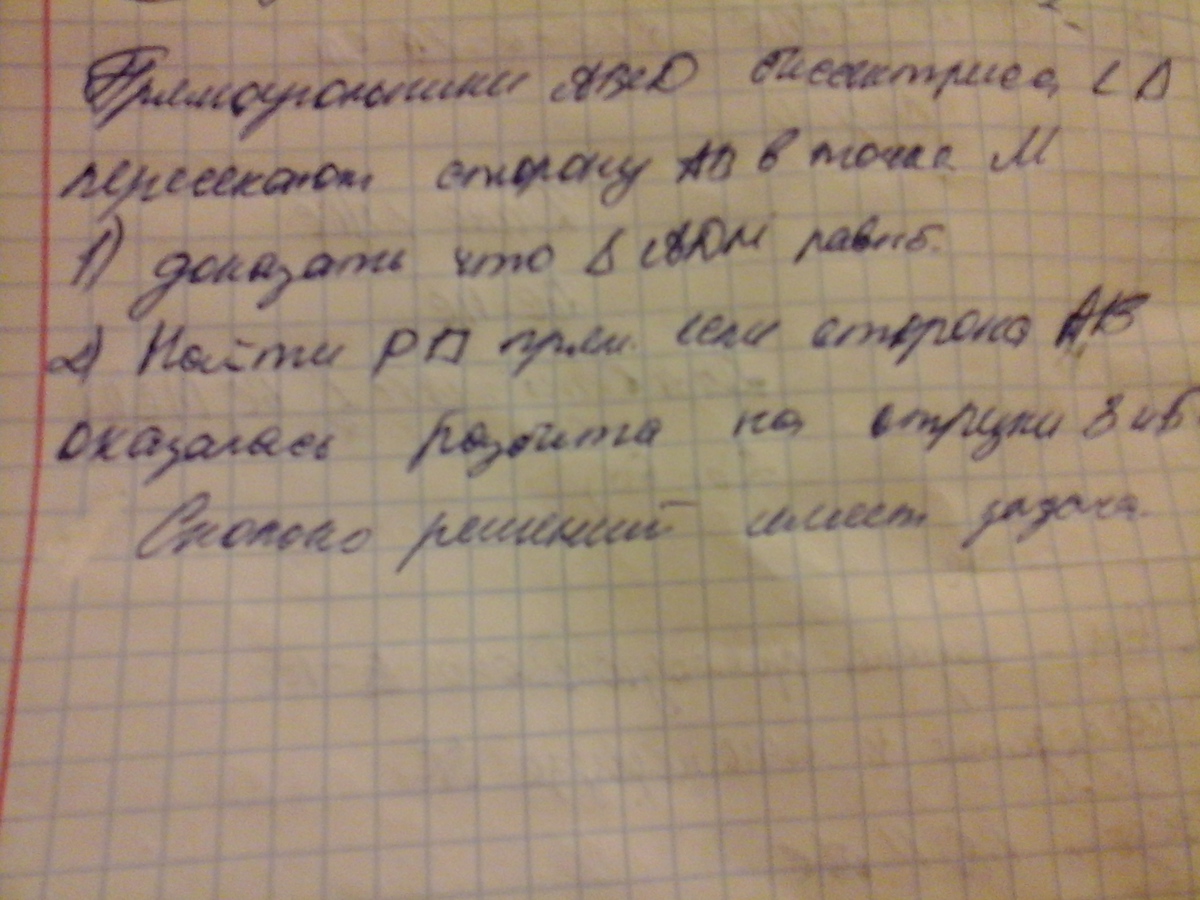 Прямоугольники АВСD биссектриса ∠ D
пересекает сторону АВ в точке М
1) доказать что Δ АDМ равнб.
2) Найти Р прям. если сторона АВ
оказалась разбита на отрезки 8 и 6
Сколько решений имеет задача.